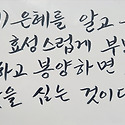 은혜를 알고
효성스럽게 부
하고 봉양하면
을 심는 것이다